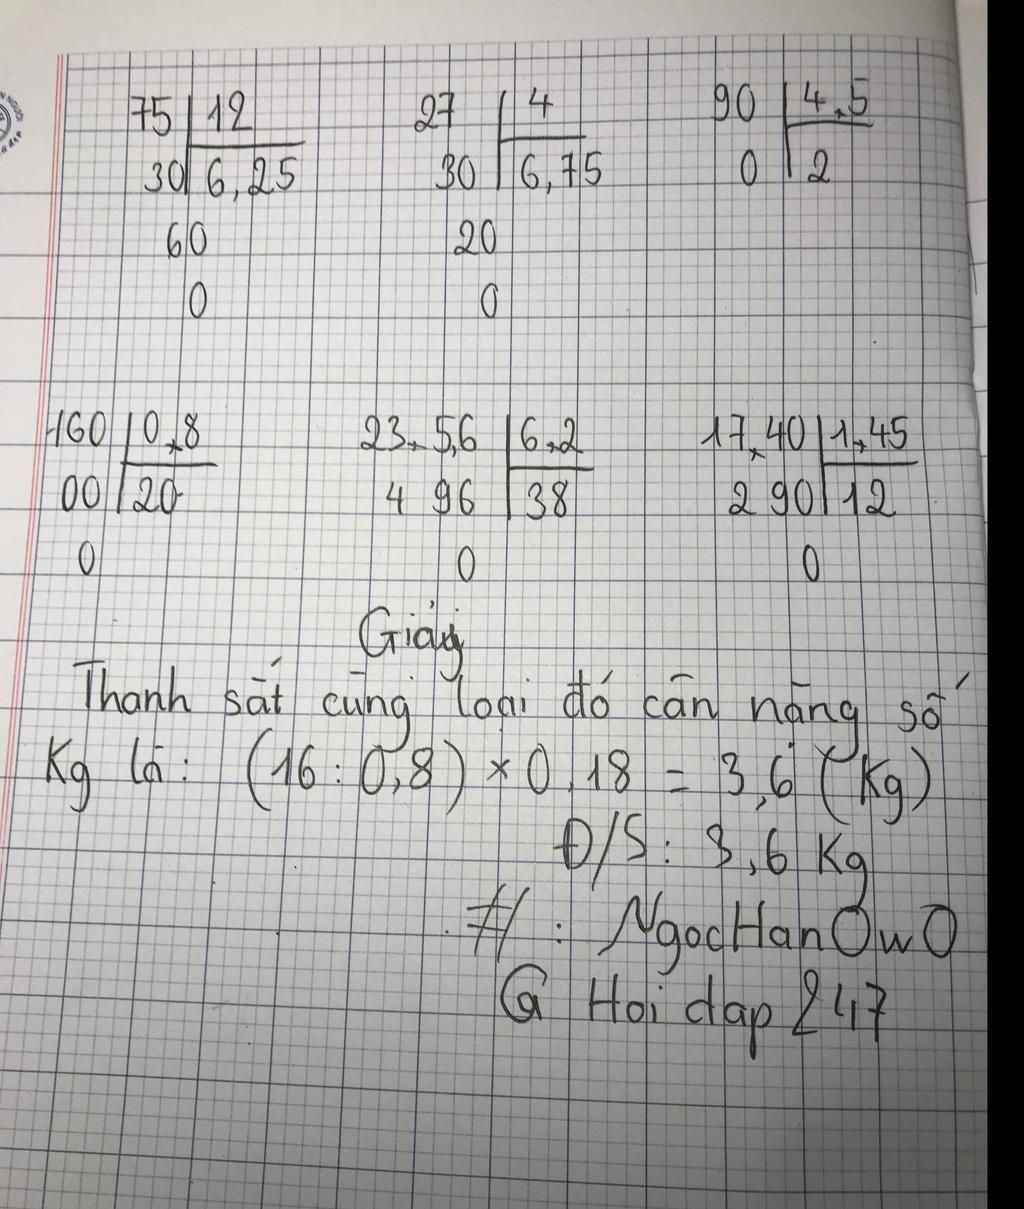 75 12 27 4 90 4,5
30 6,25 30 6,75 0 2
60 20
0 0
160 0,8 23,5,6 6,2 17,40 1,45
00 20 4 96 38 2 90 12
0 0 0
Giải
Thanh sắt cùng loại đó cân nặng số
Kg là: (16 : 0,8) × 0,18 = 3,6 (Kg)
Đ/S: 3,6 Kg
#: NgocHanOwO
@ Hoi dap 247